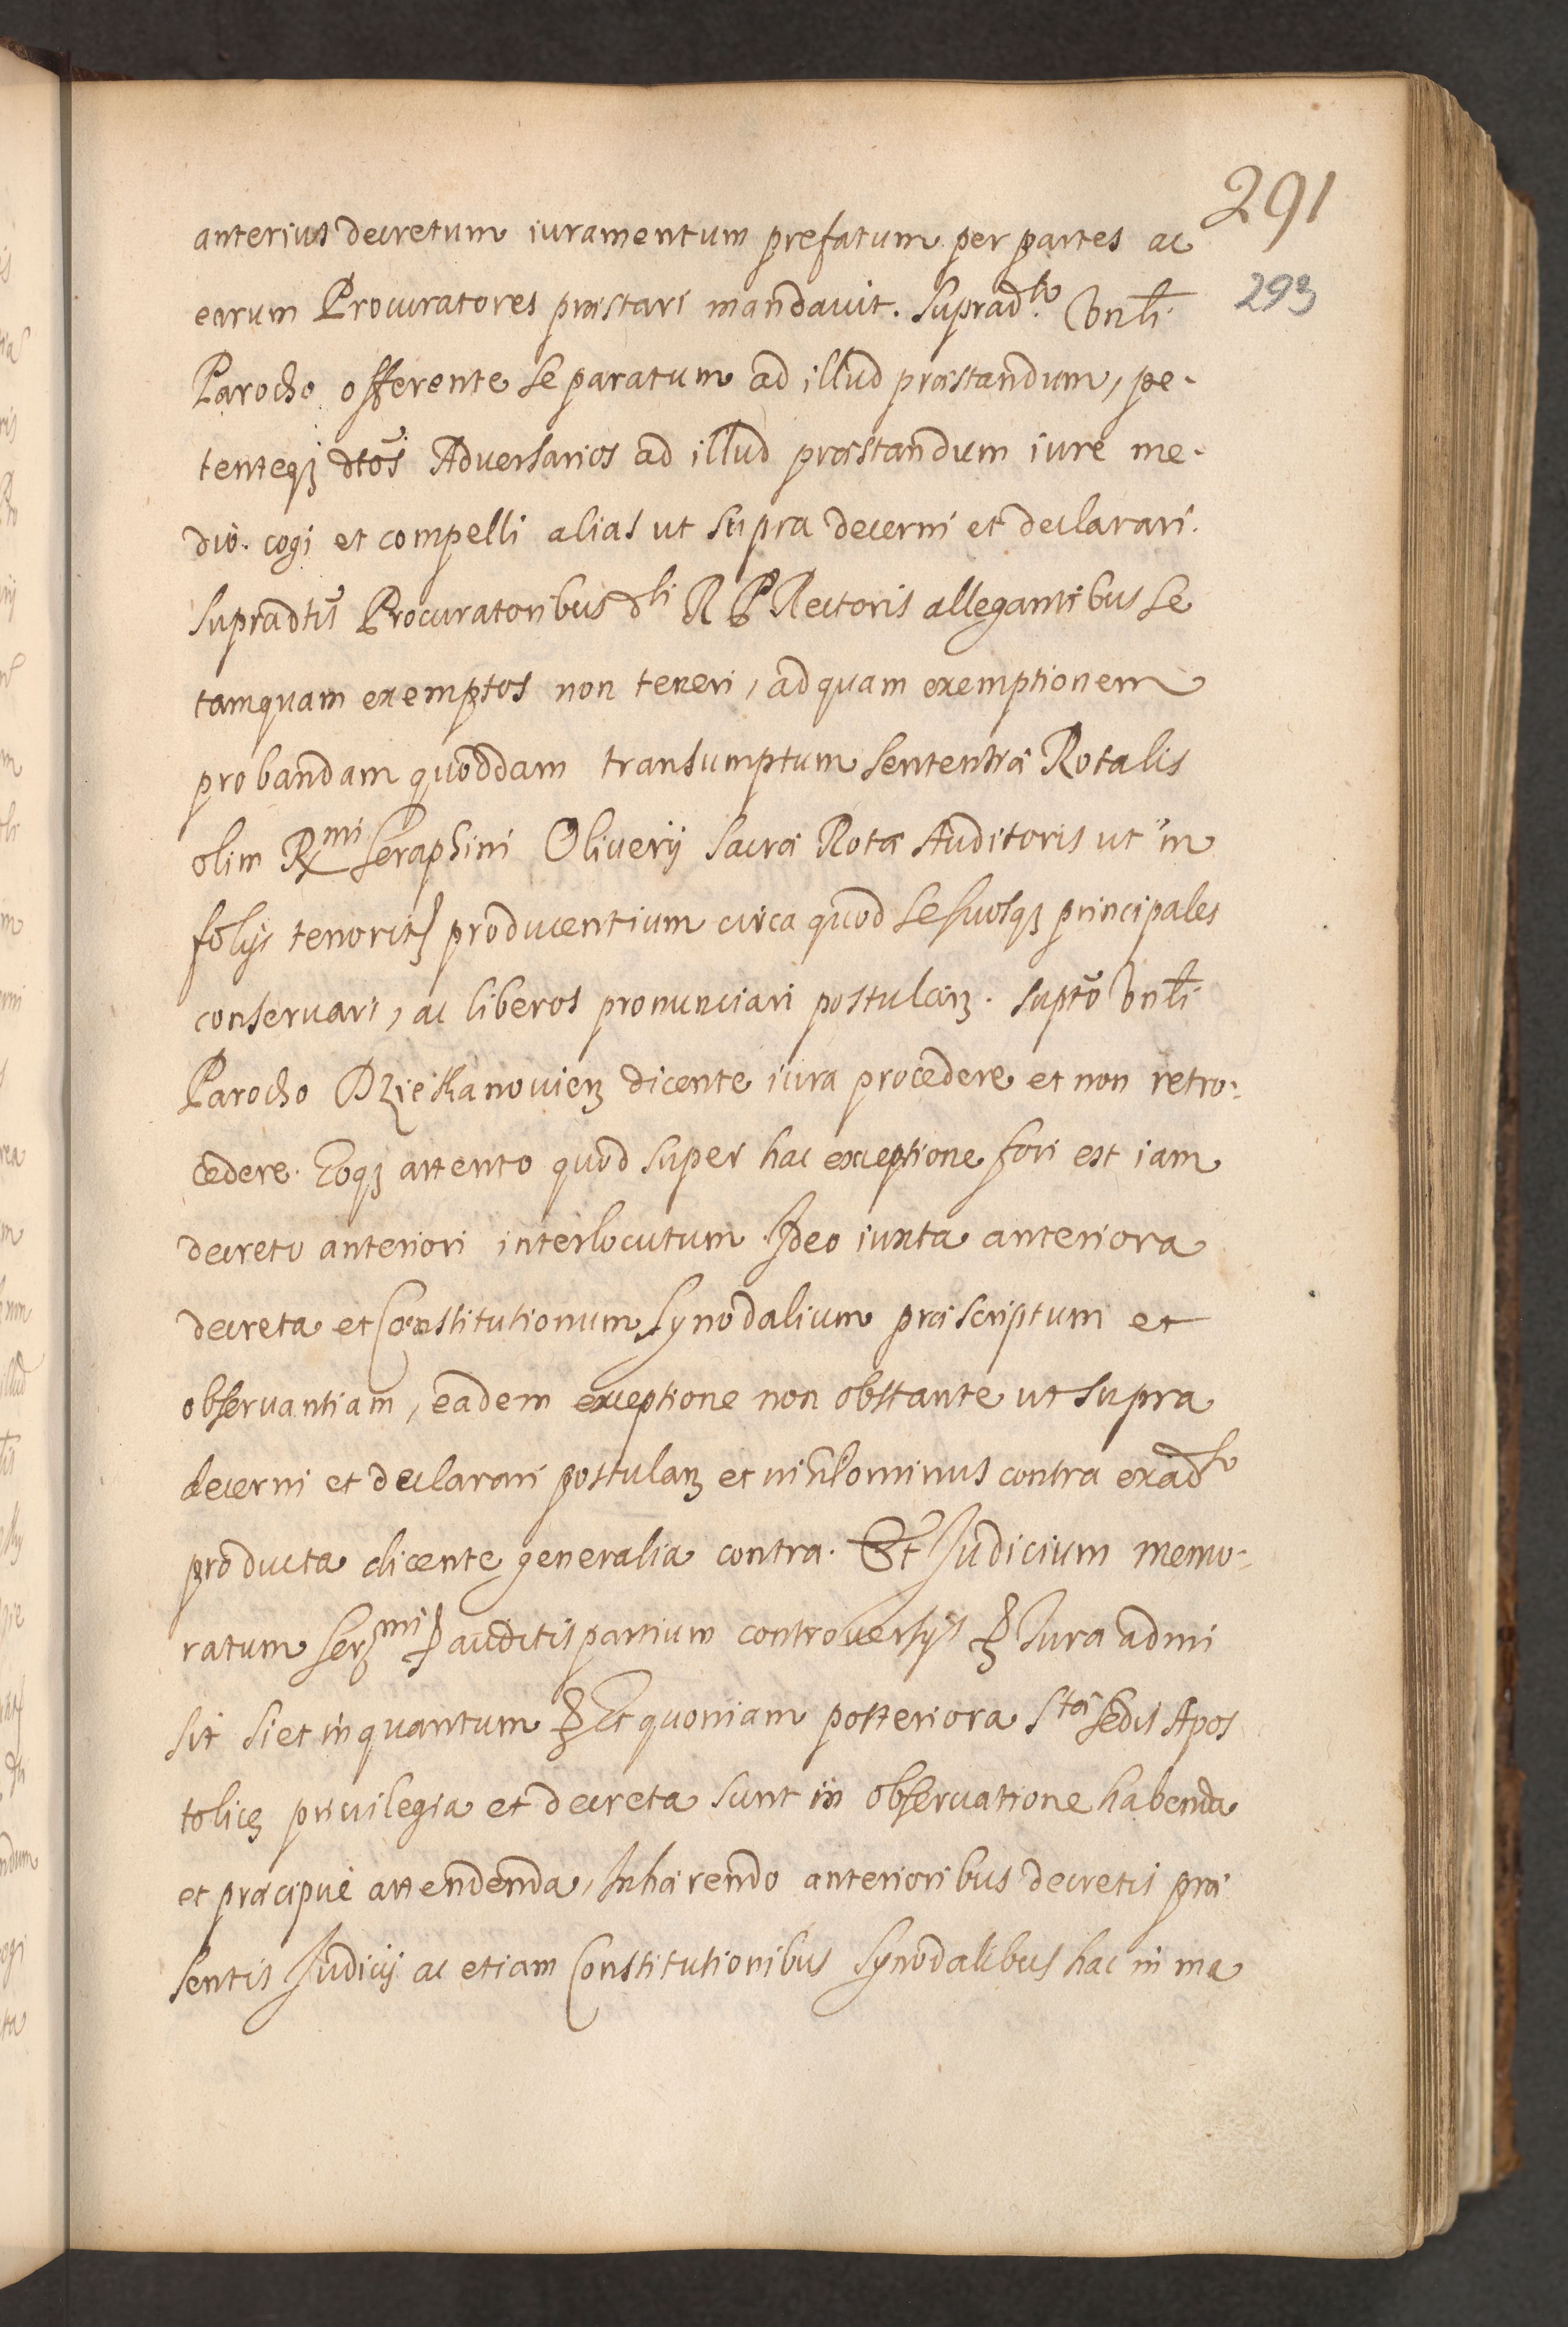 291
anterius decretum iuramentum prefatum per partes ac
293
earum Procuratores præstari mandavit. Supradto Vnbli
Parocho offerente se paratum ad illud præstandum, pe-
tenteqȝ dtos Adversarios ad illud præstandum iure me-
dio. cogi et compelli alias ut supra decerni et declarari.
supradtis Procuratoribus dti R P Rectoris allegantibus se
tamquam exemptos non teneri, ad quam exemptionem
probandam quoddam transumptum sententiæ Rotalis
olim Rmi Seraphini Oliverij sacræ Rotæ Auditoris ut in
folijs tenoris producentium circa quod se suosqȝ principales
conservari, ac liberos pronunciari postulanȝ. supto Vnbli
Parocho Dziekanovienȝ dicente iura procedere et non retro-
cedere. Eoqȝ attento quod super hac exceptione fori est iam
decreto anteriori interlocutum. Ideo iuxta anteriora
decreta et Constitutionum Synodalium præscriptum et
observantiam, eadem exceptione non obstante ut supra
decerni et declarari postulanȝ et nihlominus contra ex adto
producta dicente generalia contra. Et Judicium memo-
ratum Serȝmi auditis partium controversijs Jura admi
sit si et in quantum Et quoniam posteriora Stæ Sedis Apos
tolicę privilegia et decreta sunt in observatione habenda
et præcipue attendenda, Inhærendo anterioribus decretis præ
sentis Judicij ac etiam Constitutionibus Synodalibus hac in ma